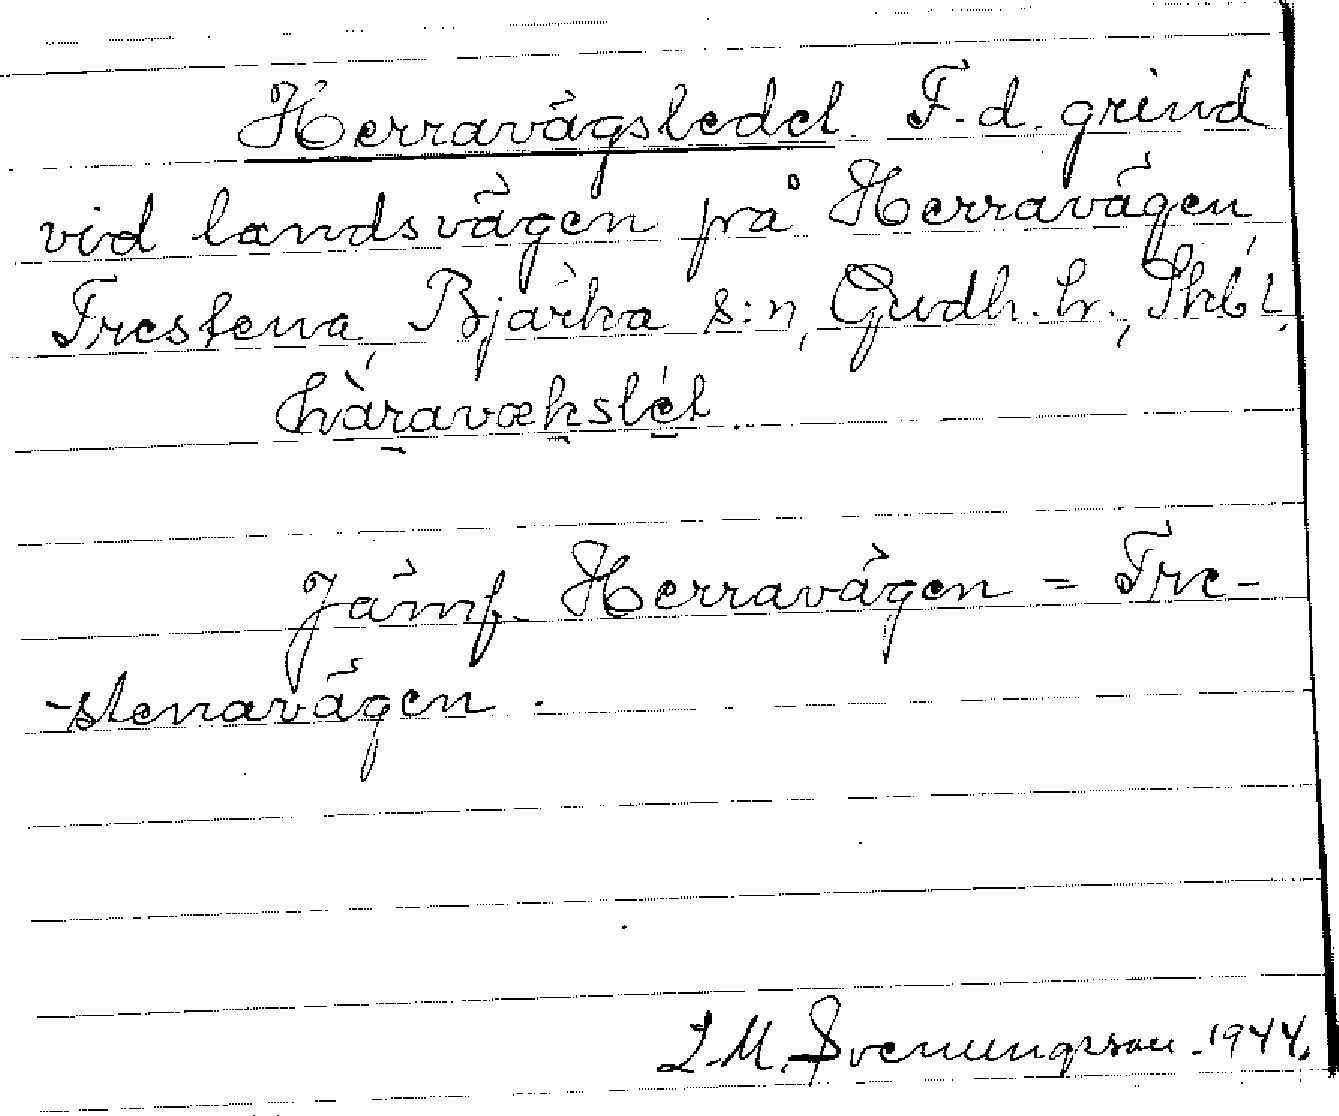 Herravägsledet. F.d. grind
vid landsvägen på Herravägen
Frestena, Bjärka s:n, Gudh. hr., Skbl.
hàravækslét
Jämf. Herravägen = Fre-
-stenavägen.
L. M. Svenungsson. 1944.